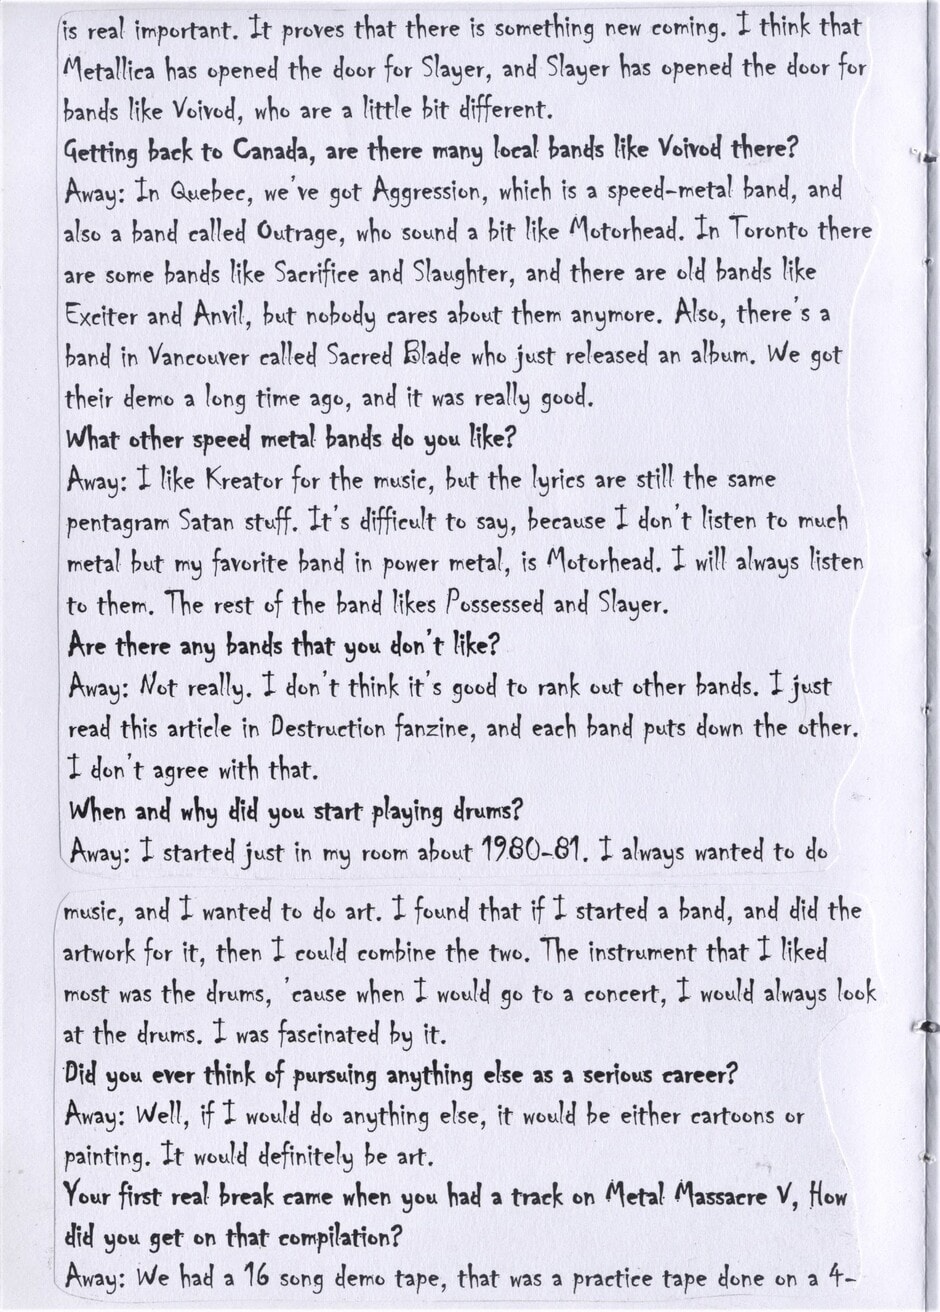 is real important. It proves that there is something new coming. I think that
Metallica has opened the door for Slayer, and Slayer has opened the door for
bands like Voivod, who are a little bit different.
Getting back to Canada, are there many local bands like Voivod there?
Away: In Quebec, we've got Aggression, which is a speed-metal band, and
also a band called Outrage, who sound a bit like Motorhead. In Toronto there
are some bands like Sacrifice and Slaughter, and there are old bands like
Exciter and Anvil, but nobody cares about them anymore. Also, there's a
band in Vancouver called Sacred Blade who just released an album. We got
their demo a long time ago, and it was really good.
What other speed metal bands do you like?
Away: I like Kreator for the music, but the lyrics are still the same
pentagram Satan stuff. It's difficult to say, because I don't listen to much
metal but my favorite band in power metal, is Motorhead. I will always listen
to them. The rest of the band likes Possessed and Slayer.
Are there any bands that you don't like?
Away: Not really. I don't think it's good to rank out other bands. I just
read this article in Destruction fanzine, and each band puts down the other.
I don't agree with that.
When and why did you start playing drums?
Away: I started just in my room about 1980-81. I always wanted to do
music, and I wanted to do art. I found that if I started a band, and did the
artwork for it, then I could combine the two. The instrument that I liked
most was the drums, 'cause when I would go to a concert, I would always look
at the drums. I was fascinated by it.
Did you ever think of pursuing anything else as a serious career?
Away: Well, if I would do anything else, it would be either cartoons or
painting. It would definitely be art.
Your first real break came when you had a track on Metal Massacre V, How
did you get on that compilation?
Away: We had a 16 song demo tape, that was a practice tape done on a 4-